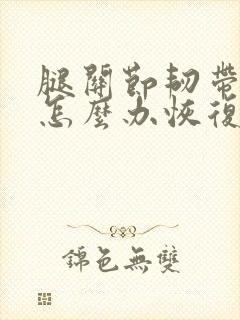 腿關節韧帶
怎麼办恢復
錦色無雙